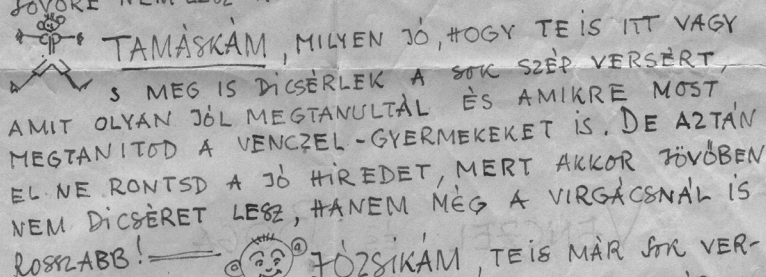 JÖVŐRE NEM LESZ
TAMÁSKÁM, MILYEN JÓ, HOGY TE IS ITT VAGY
S MEG IS DICSÉRLEK A SOK SZÉP VERSÉRT,
AMIT OLYAN JÓL MEGTANULTÁL ÉS AMIKRE MOST
MEGTANITOD A VENCZEL-GYERMEKEKET IS. DE AZTÁN
EL NE RONTSD A JÓ HIREDET, MERT AKKOR JÖVŐBEN
NEM DICSÉRET LESZ, HANEM MÉG A VIRGÁCSNÁL IS
ROSSZABB!
JÓZSIKÁM, TE IS MÁR SOK VER-